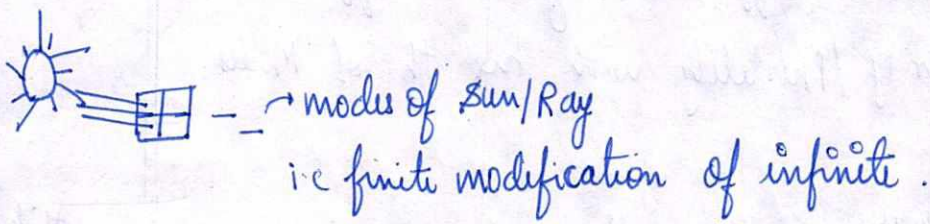 → modes of Sun/Ray
i.e finite modification of infinite.